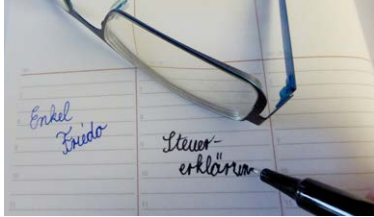 Enkel
Friedo
Steuer-
erklärun